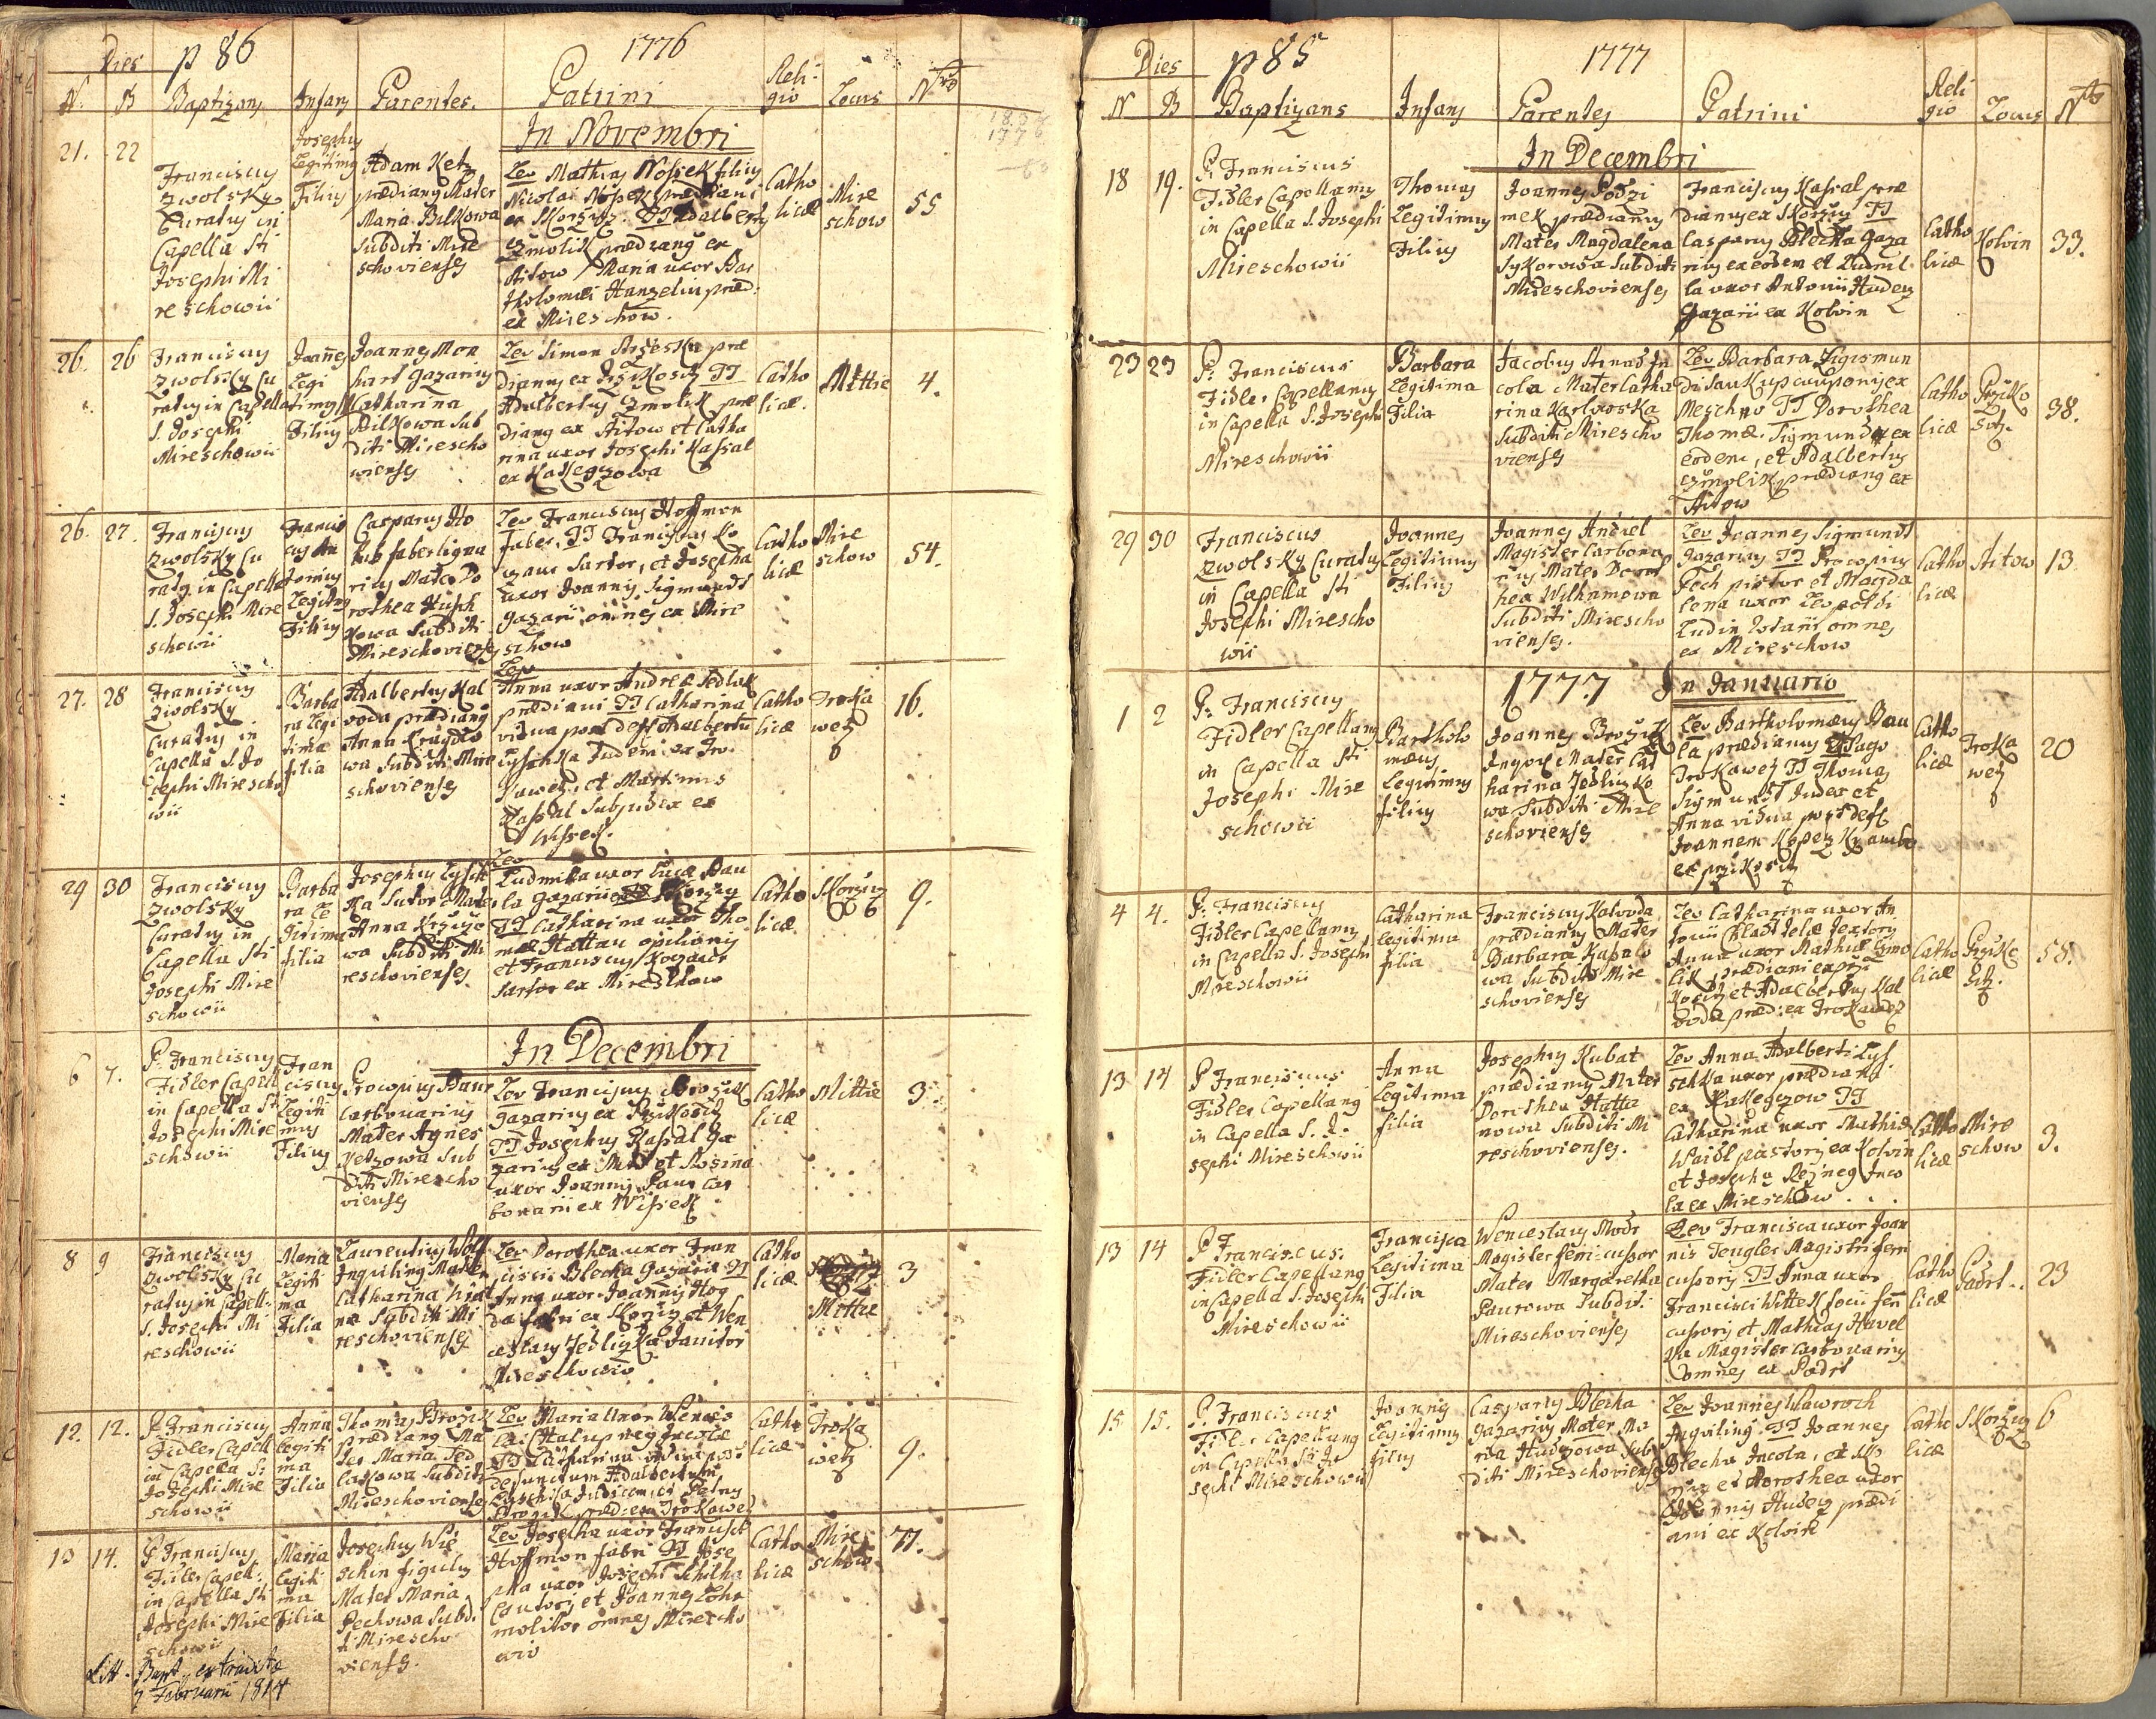 Dies p 86 1776
N. B Baptizans Infans Parentes. Patrini Reli-
gio Locus Nro
In Novembri
21. 22
Franciscus
Zwolsky
Curatus in
Capella Sti
Josephi Mi
reschowii
Josephus
Legitimus
Filius
Adam Ketz
prædianus Mater
Maria Bilkowa
Subditi Mire
schovienses
Lev Mathias Nossek filius
Nicolai Nossek prædiani
ex Skorzitz. TT Adalbertus
Zmolik prædianus ex
Stitow / Maria uxor Bar
tholomæi Hanzelin præd.
ex Mireschow.
Catho
licæ
Mire
schow
55
26. 26
Franciscus
Zwolsky Cu
ratus in Capella
S. Josephi
Mireschowii
Joannes
Legi
timus
Filius
Joannes Mon
hart Gazarius
Catharina
Bilkowa Sub
diti Mirescho
vienses
Lev Simon præ
dianus ex TT
Adalbertus Zmolik præ
dianus ex Stitow et Catha
rina uxor Josephi Kassal
ex Kakegzowa
Catho
licæ.
Mittie
4.
26. 27.
Franciscus
Zwolsky Cu
ratus in Capella
S. Josephi Mire
schowii
Francis
cus An
tonius
Legitimus
Filius
Casparus Ho
lub faber ligna
rius Mater Do
rothea Husch
kowa Subditi
Mireschovienses
Lev Franciscus Hoffman
faber, TT Franciscus Ko
uxor Joannis Sigmundt
Gazarii, omnes ex Mire
schow
Catho
licæ
Mire
schow
54.
27. 28
Franciscus
Zwolsky
Curatus in
Capella S. Jo
sephi Mirescho
wii
Barba
ra Legi
tima
filia
Adalbertus Kal
voda prædianus
Anna
wa Subditi Mire
schovienses
Lev
Anna uxor Andreæ Sedlak
prædiani TT Catharina
vidua post deff Adalbertum
Lyschka Judem. ex Tro
kawetz, et Martinus
Kassal Subjudex ex
Wissek.
Catho
licæ
Troka
wetz
16.
29 30
Franciscus
Zwolsky
Curatus in
Capella Sti
Josephi Mire
schowii
Barba
ra Le
gitima
filia
Josephus Lysch
ka Sutor Mater
Anna
wa Subditi Mi
reschovienses.
Lev
Ludmilla uxor Lucæ Bau
la Gazarii ex Skorzitz
TT Catharina uxor Tho
mæ Hattau opilionis
et Franciscus
Sartor ex Mireschow
Catho
licæ.
Skorzitz
9.
In Decembri
6 7.
P. Franciscus
Fidler Capell
in Capella Sti
Josephi Mire
schowii
Fran
ciscus
Legiti
mus
Filius
Procopius Baur
Carbonarius
Mater Agnes
Petzowa Sub
diti Mirescho
vienses
Lev Franciscus Brozik
gazarius ex Przikositz
TT Josephus Kassal Ga
zarius ex Mitt et Rosina
uxor Joannis Paur Car
bonarii ex Wissek
Catho
licæ
Mittie
3.
8 9
Franciscus
Zwolsky Cu
ratus in Capell.
S. Josephi Mi
reschowii
Maria
Legiti
ma
Filia
Laurentius Wolf
Inquilinus Mater
Catharina
na Subditi Mi
reschovienses
Lev Dorothea uxor Fran
cisci Blecha Gazarii TT
Anna uxor Joannis Hog
da fabri ex Skorzitz et Wen
ceslaus Jedliczka Janitor
Mireschowio
Catho
licæ
Mittie
3
12. 12.
P Franciscus
Fidler Capell
in Capella S:
Josephi Mire
schowii
Anna
legiti
ma
Filia
Thomas Brozik
prædianus Ma
ter Maria Sed
lakowa Subditi
Mireschovienses
Lev Maria Uxor Wences
lai Chalupneg Incolæ
TT Catharina vidua post
defunctum Adalbertum
Lyschka Judicem et Petrus
Brozik præd: ex Trokawetz
Catho
licæ
Troka
wetz
9.
13 14.
P Franciscus
Fidler Capell:
in Capella Sti
Josephi Mire
schowii
Maria
legiti
ma
Filia
Josephus Wie
schin figulus
Mater Maria
Pechowa Subd.
ti Mirescho
vienses.
Lev Josepha uxor Francisci
Hoffmon fabri TT Jose
pha uxor Josephi Schilha
Cantoris et Joannes Loha
molitor omnes Mirescho
wio
Catho
licæ
Mire
schow
77.
Litt. Bapt. extraditæ
7 Februarii 1814
Dies p 85 1777
N B Baptizans Infans Parentes Patrini Reli
gio Locus Nro
In Decembri
18 19.
P. Franciscus
Fidler Capellanus
in Capella S. Josephi
Mireschowii
Thomas
Legitimus
Filius
Joannes Podzi
mek prædianus
Mater Magdalena
Sykorowa Subditi
Mireschovienses
Franciscus Kassal præ
dianus ex Skorzitz TT
Casparus Blecha Gaza
rius ex eodem et Ludmil
la uxor Antonii Hudetz
Gazarii ex Kolvin
Catho
licæ
Kolvin
33.
23 23
P: Franciscus
Fidler Capellanus
in Capella S. Josephi
Mireschowii
Barbara
Legitima
Filia
Jacobus Arnast In
cola Mater Catha
rina Karlvoska
Subditi Mirescho
vienses
Lev Barbara Sigismun
di Saukup cauponis ex
Meschno TT Dorothea
Thomæ Sigmundt ex
eodem, et Adalbertus
Czmolik prædianus ex
Stitow
Catho
licæ
Przyko
sitz.
38.
29 30
Franciscus
Zwolsky Curatus
in Capella Sti
Josephi Mirescho
wii
Joannes
Legitimus
Filius
Joannes Andrel
Magister Carbona
rius Mater Doro
hea Wilhamowa
Subditi Mirescho
vienses.
Lev Joannes Sigmundt
Gazarius TT Procopius
Pech pistor et Magda
lena uxor Leopoldi
Ludin omnes
ex Mireschow
Catho
licæ
Stitow
13
1777 In Januario
1 2
P: Franciscus
Fidler Capellanus
in Capella Sti
Josephi Mire
schowii
Bartholo
mæus
Legitimus
filius
Joannes Brozik
Inquil Mater Cat
harina Jedliczko
wa Subditi Mire
schovienses
Lev Bartholomæus Bau
la prædianus ex Pago
Trokawetz TT Thomas
Sigmundt Judex et
Anna vidua post deff
Joannem
ex Przikositz
Catho
licæ
Troka
wetz
20
4 4.
P: Franciscus
Fidler Capellanus
in Capella S. Josephi
Mireschowii
Catharina
legitima
filia
Franciscus Kalvoda
prædianus Mater
Barbara Kasalo
wa Subditi Mire
schovienses
Lev Catharina uxor An
tonii Textoris
Anna uxor Mathiæ Czmo
lik prædiani ex Przi
kositz et Adalbertus Kal
voda præd: ex Trokawetz
Catho
licæ
Przike
sitz.
58.
13 14
P Franciscus
Fidler Capellanus
in Capella S. Jo
sephi Mireschowii
Anna
Legitima
filia
Josephus Kubat
prædianus Mater
Dorothea Hatta
nowa Subditi Mi
reschovienses.
Lev Anna Adalberti Lys.
schka uxor prædiani
ex Kakegczow TT
Catharina uxor Mathiæ
Waidl pastoris ex Kolvin
et Josephus Rejneg Inco
la ex Mireschow
Catho
licæ
Mire
schow
3.
13 14
P Franciscus.
Fidler Capellanus
in Capella S. Josephi
Mireschowii
Francisca
Legitima
Filia
Wenceslaus Modr
Magister ferri cusor
Mater Margaretha
Paurowa Subditi
Mireschovienses
Lev Francisca uxor Joan
nis Tengler Magistri ferri
cusoris TT Anna uxor
Francisci Wittek socii ferri
cusoris et Mathias Havel
ka Magister Carbonarius
omnes ex Padrt
Catho
licæ
Padrt.
23
15 15.
P. Franciscus
Fidler Capellanus
in Capella Sti Jo
sephi Mireschowii
Joannes
Legitimus
filius
Casparus Blecha
Gazarius Mater Ma
ria Hudczowa Sub
diti Mireschovienses
Lev Joannes Wawroch
Inquilinus TT Joannes
Blecha Incola, ex Sko
rzitz et Dorothea uxor
Joannis Hudetz prædi
ani ex Kolvin
Catho
licæ
Skorzitz
6